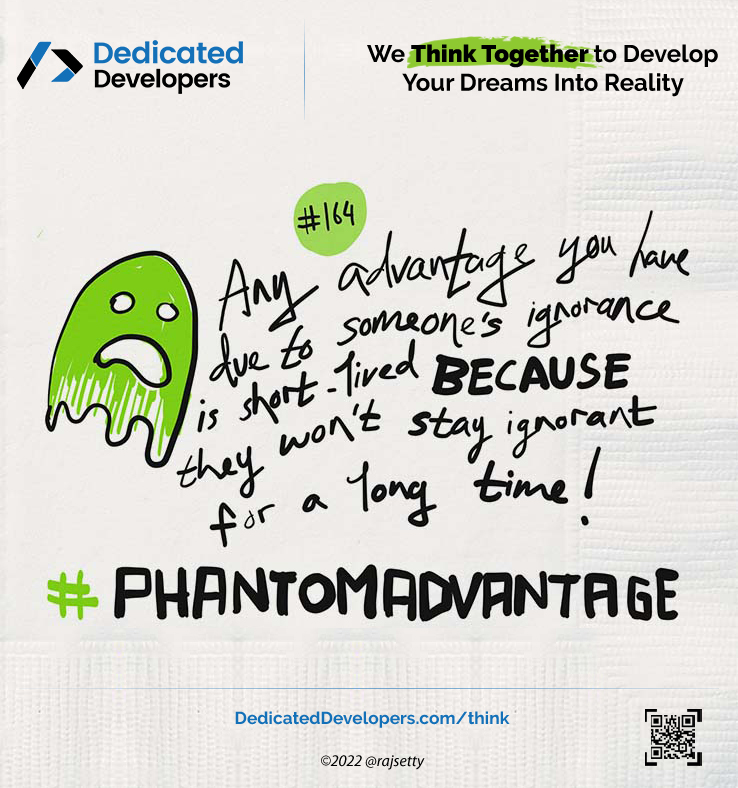 Dedicated
Developers
We Think Together to Develop
Your Dreams Into Reality
#164
Any advantage you have
due to someone's ignorance
is short-lived BECAUSE
they won't stay ignorant
for a long time!
#PHANTOMADVANTAGE
DedicatedDevelopers.com/think
©2022 @rajsetty